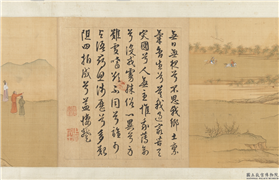 無日無夜兮不思我鄉土稟
氣含生兮莫過我最苦天
災國亂兮人無主唯我薄命
兮沒戎虜殊俗心異兮身
難處嗜慾不同兮誰可
與語尋思涉歷兮多艱
阻四拍成兮益悽楚